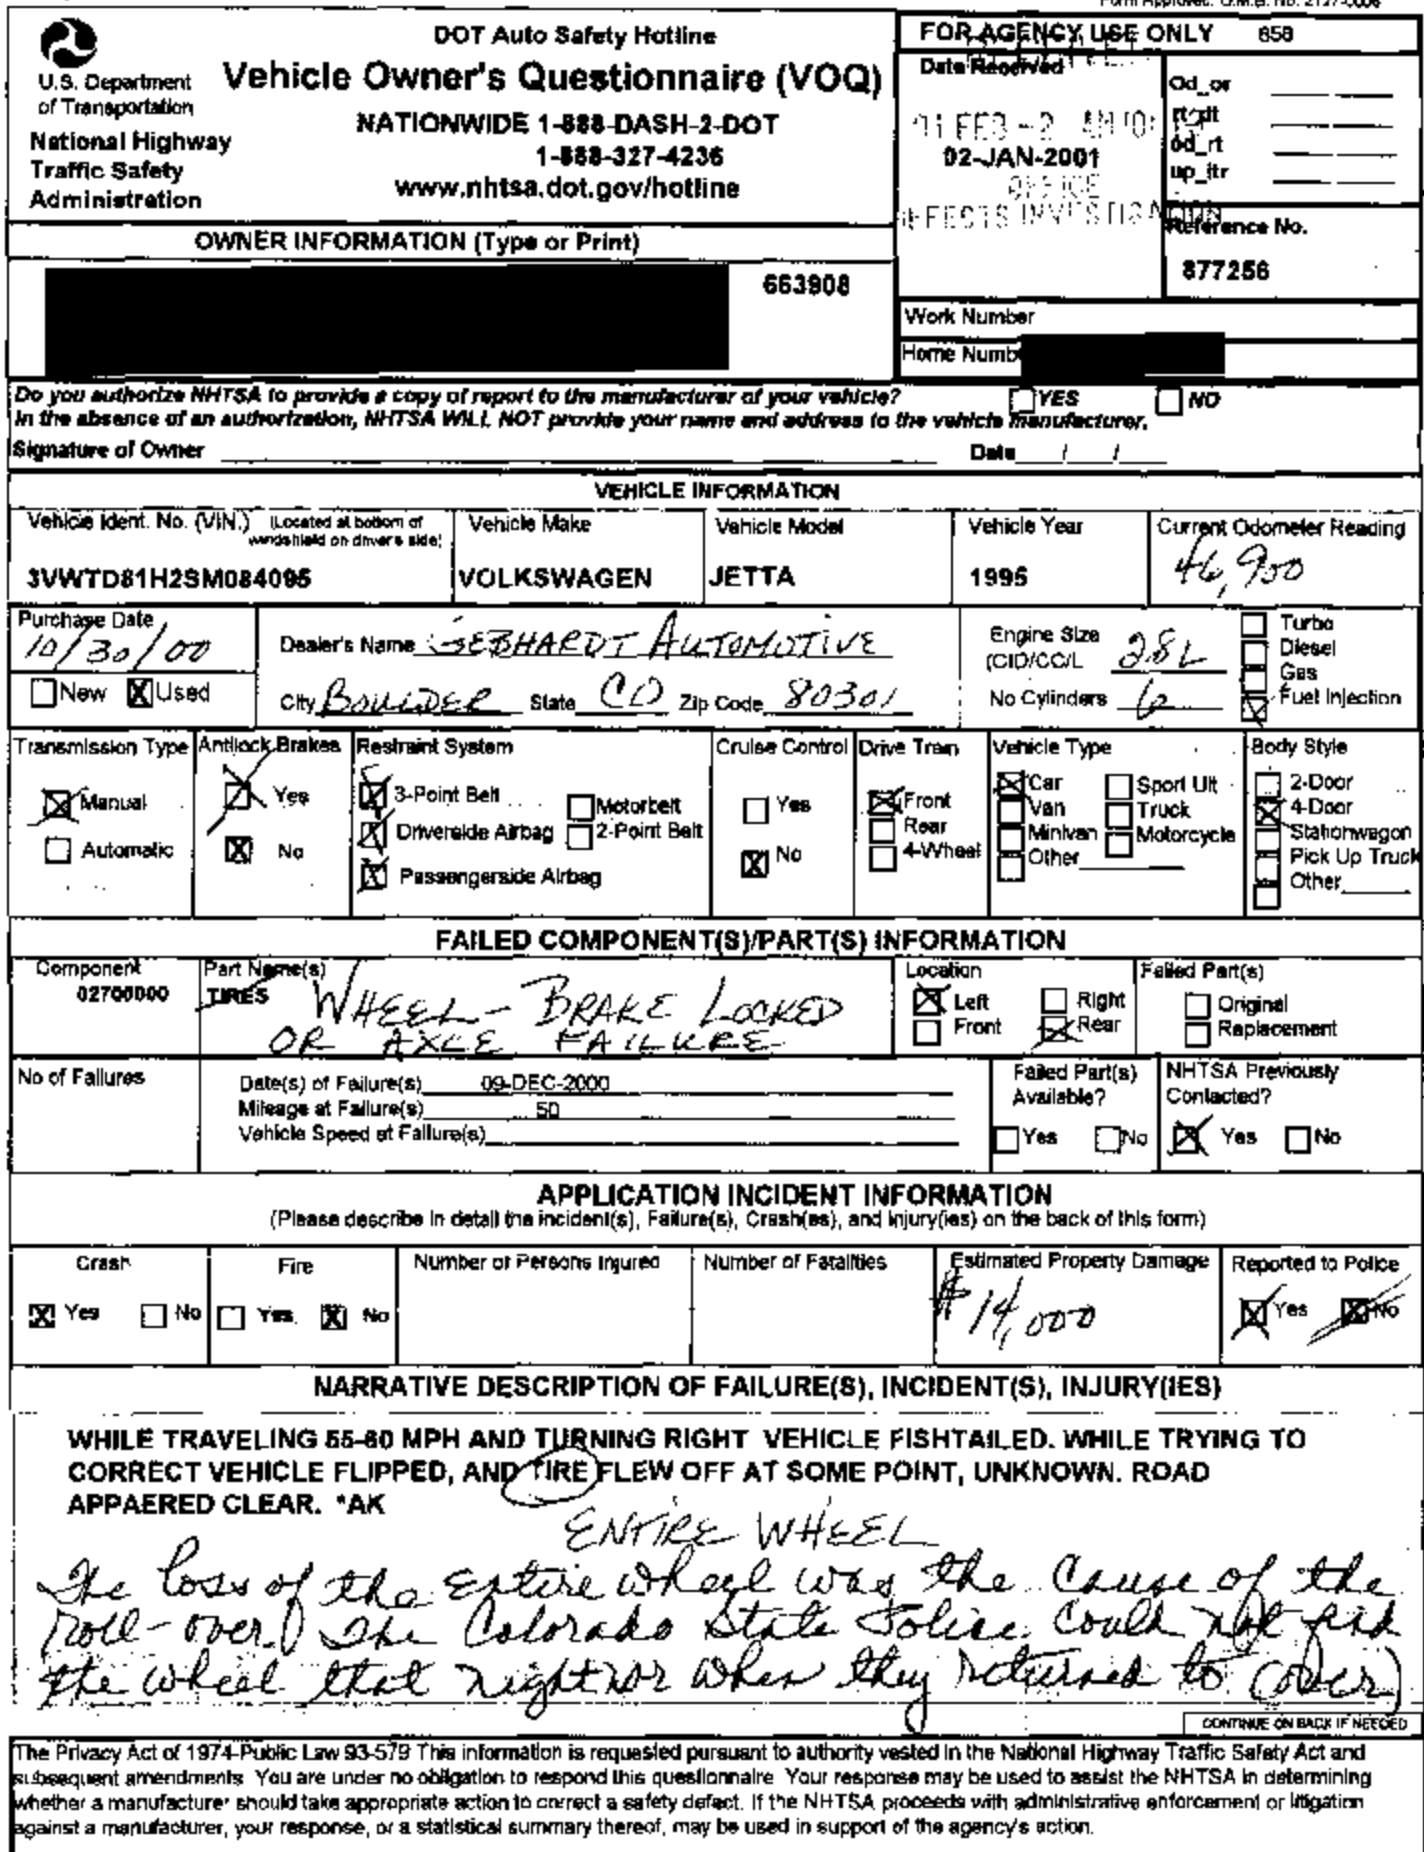 Form Approved: O.M.B. No. 2127-0008
U.S. Department
of Transportation
National Highway
Traffic Safety
Administration
DOT Auto Safety Hotline
Vehicle Owner's Questionnaire (VOQ)
NATIONWIDE 1-888-DASH-2-DOT
1-888-327-4236
www.nhtsa.dot.gov/hotline
FOR AGENCY USE ONLY 658
Date Received
01 FEB -2 AM 10
02-JAN-2001
OFFICE
DEFECTS INVESTIGATION
Od_or
rt_dt
od_rt
up_itr
Reference No.
877256
OWNER INFORMATION (Type or Print)
663908
Work Number
Home Numb
Do you authorize NHTSA to provide a copy of report to the manufacturer of your vehicle? YES NO
In the absence of an authorization, NHTSA WILL NOT provide your name and address to the vehicle manufacturer.
Signature of Owner Date / /
VEHICLE INFORMATION
Vehicle Ident. No. (VIN.) (Located at bottom of
windshield on driver's side)
3VWTD81H2SM084095
Vehicle Make
VOLKSWAGEN
Vehicle Model
JETTA
Vehicle Year
1995
Current Odometer Reading
46,900
Purchase Date
10/30/00
New X Used
Dealer's Name GEBHARDT AUTOMOTIVE
City BOULDER State CO Zip Code 80301
Engine Size
(CID/CC/L 2.8L
No Cylinders 6
Turbo
Diesel
Gas
Fuel Injection
Transmission Type
Manual
Automatic
Antilock Brakes
Yes
X No
Restraint System
3-Point Belt
Driverside Airbag
Passengerside Airbag
Motorbelt
2-Point Belt
Cruise Control
Yes
X No
Drive Train
Front
Rear
4-Wheel
Vehicle Type
Car
Van
Minivan
Other
Sport Ult
Truck
Motorcycle
Body Style
2-Door
4-Door
Stationwagon
Pick Up Truck
Other
FAILED COMPONENT(S)/PART(S) INFORMATION
Component
02700000
Part Name(s)
TIRES
WHEEL - BRAKE LOCKED
OR AXLE FAILURE
Location
Left Right
Front Rear
Failed Part(s)
Original
Replacement
No of Failures
Date(s) of Failure(s) 09-DEC-2000
Mileage at Failure(s) 50
Vehicle Speed at Failure(s)
Failed Part(s)
Available?
Yes No
NHTSA Previously
Contacted?
Yes No
APPLICATION INCIDENT INFORMATION
(Please describe in detail the incident(s), Failure(s), Crash(es), and Injury(ies) on the back of this form)
Crash
X Yes No
Fire
Yes X No
Number of Persons Injured
Number of Fatalities
Estimated Property Damage
$14,000
Reported to Police
Yes No
NARRATIVE DESCRIPTION OF FAILURE(S), INCIDENT(S), INJURY(IES)
WHILE TRAVELING 55-60 MPH AND TURNING RIGHT VEHICLE FISHTAILED. WHILE TRYING TO
CORRECT VEHICLE FLIPPED, AND TIRE FLEW OFF AT SOME POINT, UNKNOWN. ROAD
APPAERED CLEAR. *AK
ENTIRE WHEEL
The loss of the entire wheel was the cause of the
roll-over. The Colorado State Police could not find
the wheel that night nor when they returned to (over)
CONTINUE ON BACK IF NEEDED
The Privacy Act of 1974-Public Law 93-579 This information is requested pursuant to authority vested in the National Highway Traffic Safety Act and
subsequent amendments You are under no obligation to respond this questionnaire Your response may be used to assist the NHTSA in determining
whether a manufacturer should take appropriate action to correct a safety defect. If the NHTSA proceeds with administrative enforcement or litigation
against a manufacturer, your response, or a statistical summary thereof, may be used in support of the agency's action.